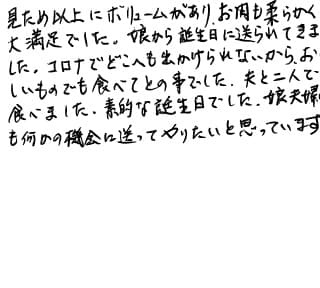 見ため以上にボリュームがあり、お肉も柔らかく
大満足でした。娘から誕生日に送られてきま
した。コロナでどこへも出かけられないから、お
しいものでも食べてとの事でした。夫と二人で
食べました。素的な誕生日でした。娘夫婦
も何かの機会に送ってやりたいと思っています